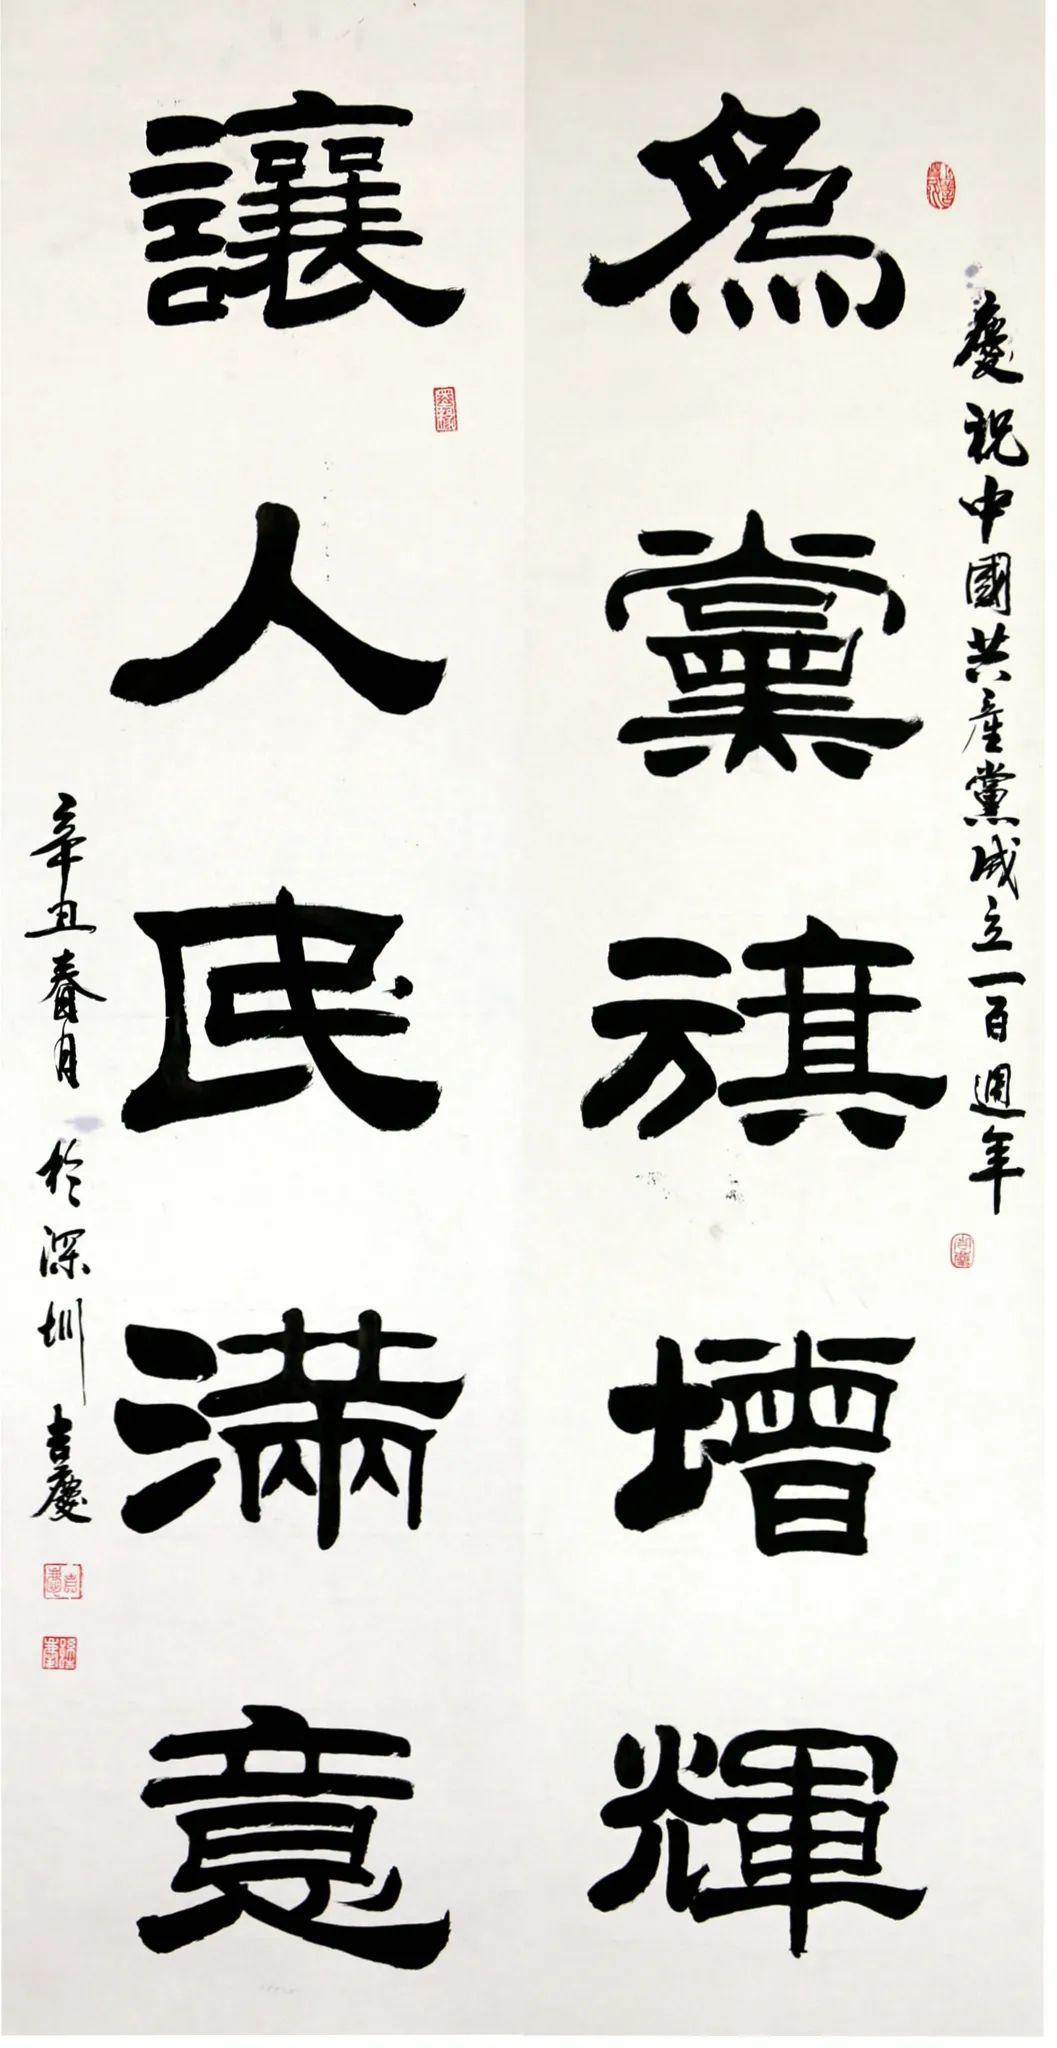 慶祝中國共產黨成立一百週年
為黨旗增輝
讓人民滿意
辛丑春月於深圳吉慶